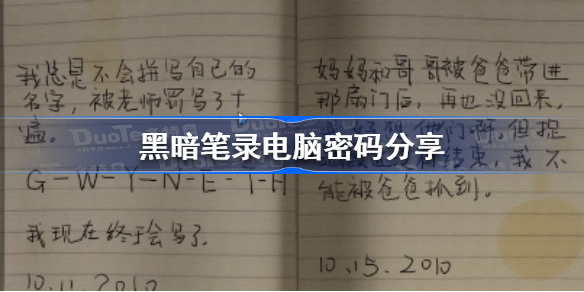 我总是不会拼写自己的
名字，被老师罚写了十
遍。
G-W-Y-N-E-T-H
我现在终于会写了
10.11.2010
妈妈和哥哥被爸爸带进
那扇门后，再也没回来，
但捉
结束，我不
能被爸爸抓到。
10.15.2010
黑暗笔录电脑密码分享
DuoTe